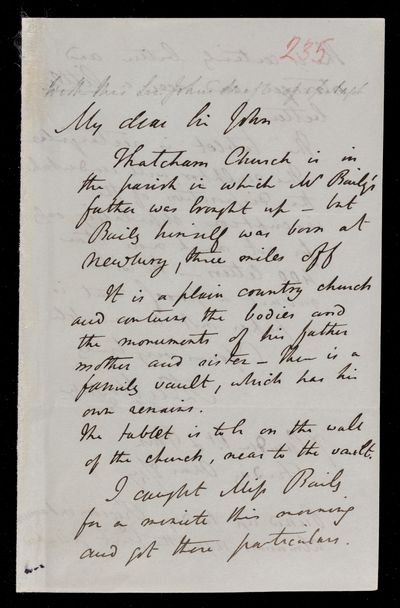 235
My dear Sir John
Thatcham Church is in
the parish in which Mr Baily's
father was brought up – but
Baily himself was born at
Newbury, three miles off
It is a plain country church
and contains the bodies and
the monuments of his father
mother and sister – There is a
family vault, which has his
own remains.
The tablet is to be on the wall
of the church, near to the vault.
I caught Miss Baily
for a minute this morning
and got these particulars.